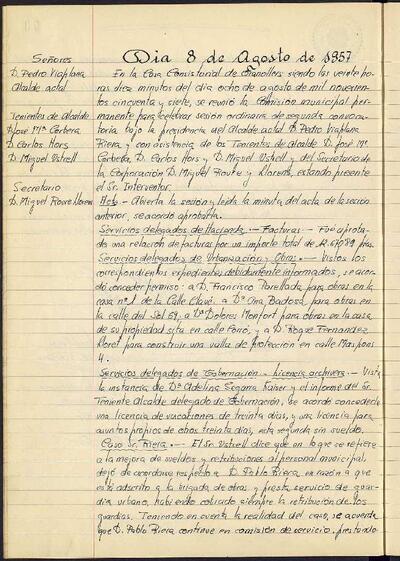 Señores
D. Pedro Viaplana
Alcalde actal
Tenientes de Alcalde
D. José Mª Corbera
D. Carlos Hors
D. Miguel Ustrell
Secretario
D. Miguel Roure Llorens
Dia 8 de Agosto de 1957
En la Casa Consistorial de Granollers siendo las veinte ho-
ras diez minutos del dia ocho de agosto de mil novecien-
tos cincuenta y siete, se reunió la Comisión municipal per-
manente para celebrar sesión ordinaria de segunda convoca-
toria bajo la presidencia del Alcalde actal D. Pedro Viaplana
Riera y con asistencia de los Tenientes de Alcalde D. José Mª
Corbera, D. Carlos Hors y D. Miguel Ustrell y del Secretario de
la Corporación D. Miguel Roure y Llorens, estando presente
el Sr. Interventor.
Acta.- Abierta la sesión y leida la minuta del acta de la sesión
anterior, se acordo aprobarla.
Servicios delegados de Hacienda.- Facturas.- Fué aproba-
da una relación de facturas por un importe total de ptas.
Servicios delegados de Urbanización y Obras.- Vistos los
correspondientes expedientes debidamente informados, se acor-
dó conceder permiso: a D. Francisco Parellada para obras en la
casa nº 1 de la Calle Clavé. a Dª Ana Badosa para obras en
la calle del Sol 69, a Dª Dolores Monfort para obras en la casa
de su propiedad sita en calle Corró, y a D. Roger Fernandez
Doret para construir una valla de protección en calle Maspons
4.
Servicios delegados de Gobernación.- Licencia archivera.- Vista
la instancia de Dª Adelina Segarra Kaiser y el informe del Sr.
Teniente Alcalde delegado de Gobernación, se acordó concederle
una licencia de vacaciones de treinta dias, y una licencia para
asuntos propios de otros treinta dias, esta segunda sin sueldo.
Caso Sr. Riera.- El Sr. Ustrell dice que en lo que se refiere
a la mejora de sueldos y retribuciones al personal municipal,
dejó de acordarse respecto a D. Pablo Riera en razón a que
está adscrito a la brigada de obras y presta servicio de guar-
dia urbano, habiendo cobrado siempre la retribución de los
guardias. Teniendo en cuenta la realidad del caso, se acuerda
que D. Pablo Riera continue en comisión de servicio, prestando